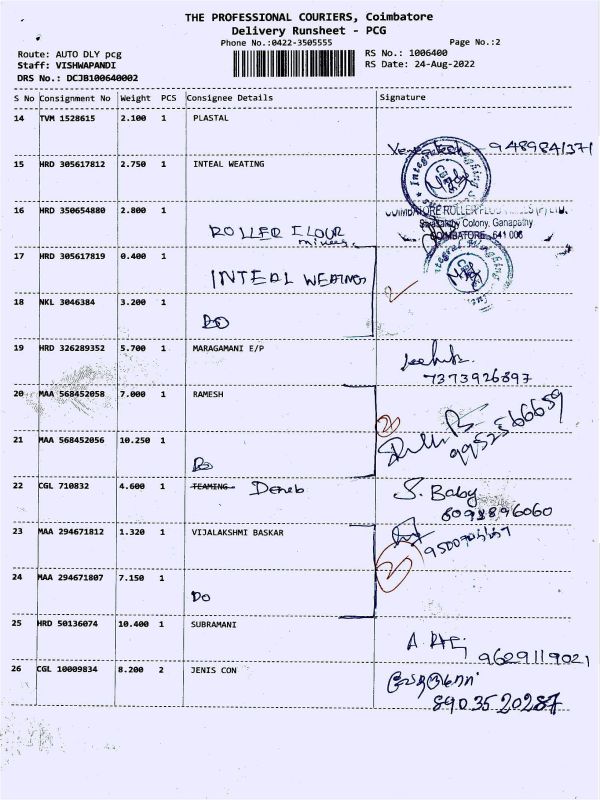 THE PROFESSIONAL COURIERS, Coimbatore
Delivery Runsheet - PCG
Phone No.:0422-3505555
Page No.:2
Route: AUTO DLY pcg
RS No.: 1006400
Staff: VISHWAPANDI
RS Date: 24-Aug-2022
DRS No.: DCJB100640002
S No Consignment No Weight PCS Consignee Details Signature
14 TVM 1528615 2.100 1 PLASTAL
9489841371
15 HRD 305617812 2.750 1 INTEAL WEATING
16 HRD 350654880 2.800 1
ROLLER FLOUR
COIMBATORE ROLLER FLOUR MILLS (P) LTD.
Colony, Ganapathy
COIMBATORE - 641 006
17 HRD 305617819 0.400 1
INTEAL WEATING
2
18 NKL 3046384 3.200 1
DO
19 HRD 326289352 5.700 1 MARAGAMANI E/P
7373926897
20 MAA 568452058 7.000 1 RAMESH
2
9952566659
21 MAA 568452056 10.250 1
DO
22 CGL 710832 4.600 1 TEAMING Deneb
S. Baby
8098896060
23 MAA 294671812 1.320 1 VIJALAKSHMI BASKAR
24 MAA 294671807 7.150 1
2
DO
25 HRD 50136074 10.400 1 SUBRAMANI
9629119021
26 CGL 10009834 8.200 2 JENIS CON
8903520287